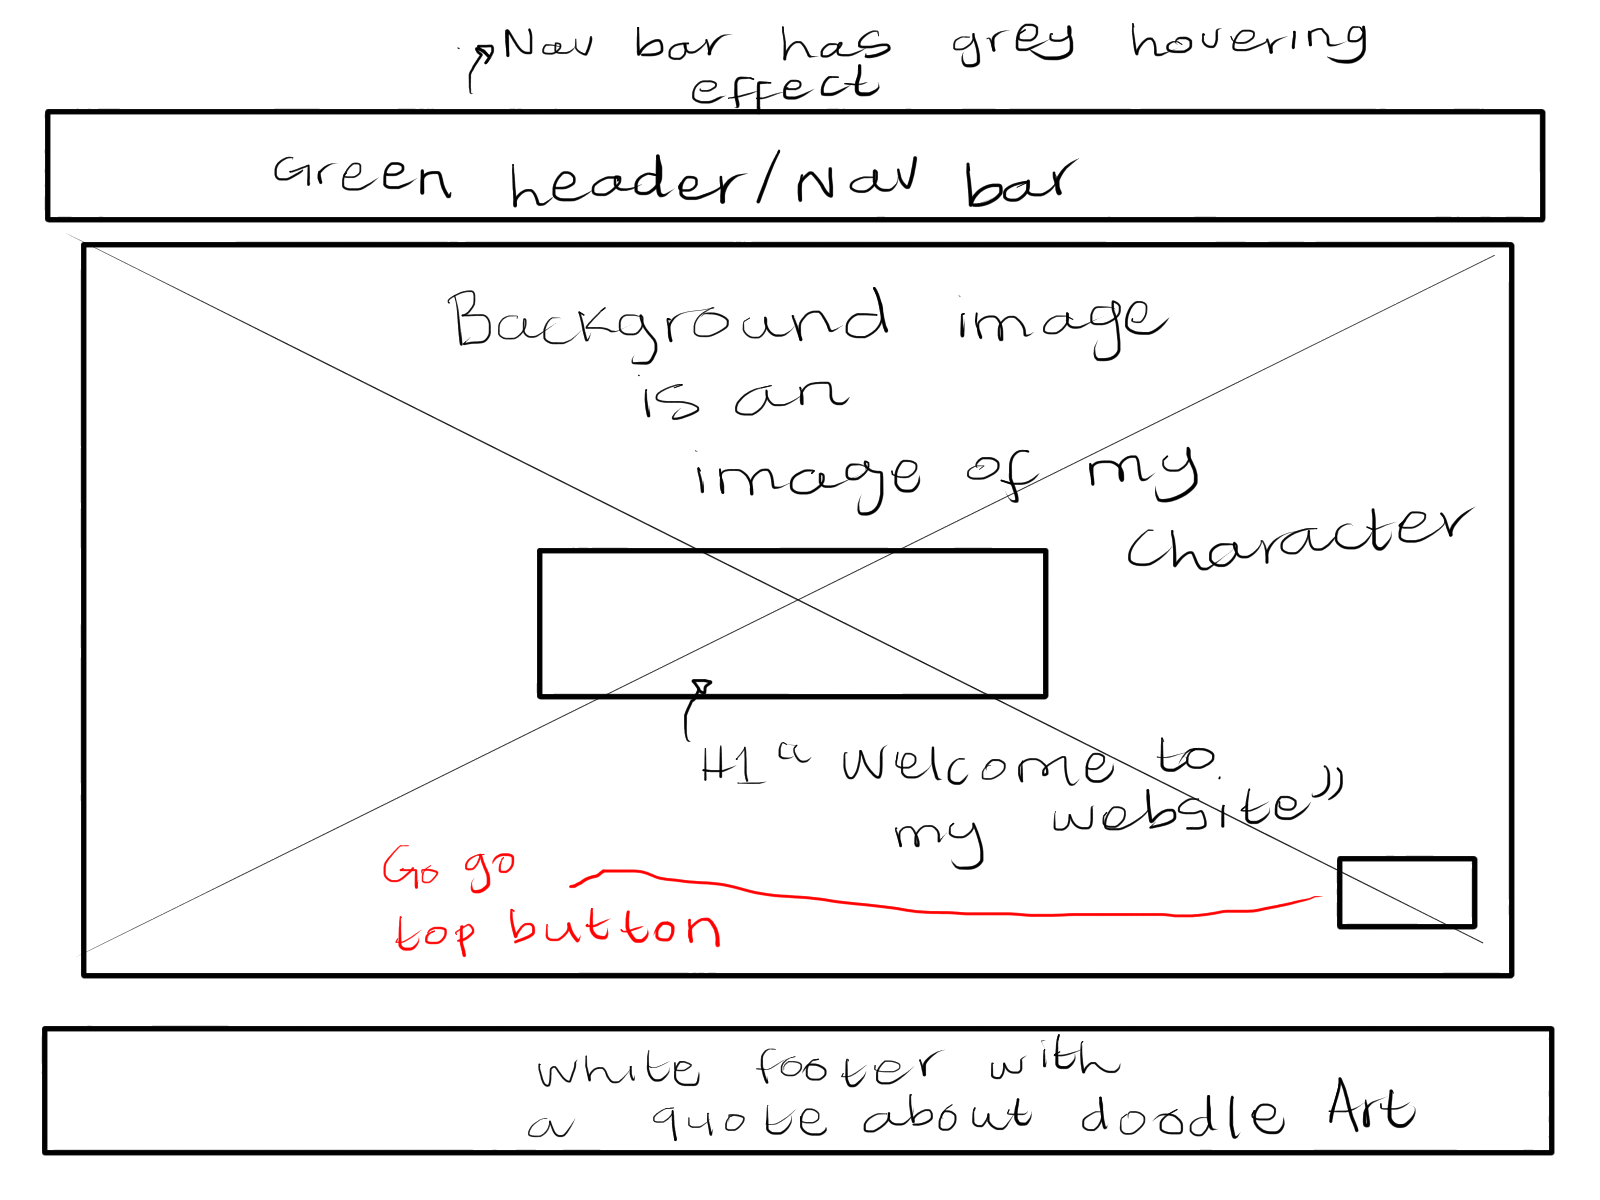 Nav bar has grey hovering
effect
Green header/Nav bar
Background image
is an
image of my
character
H1 “Welcome to
my website”
Go go
top button
white footer with
a quote about doodle Art